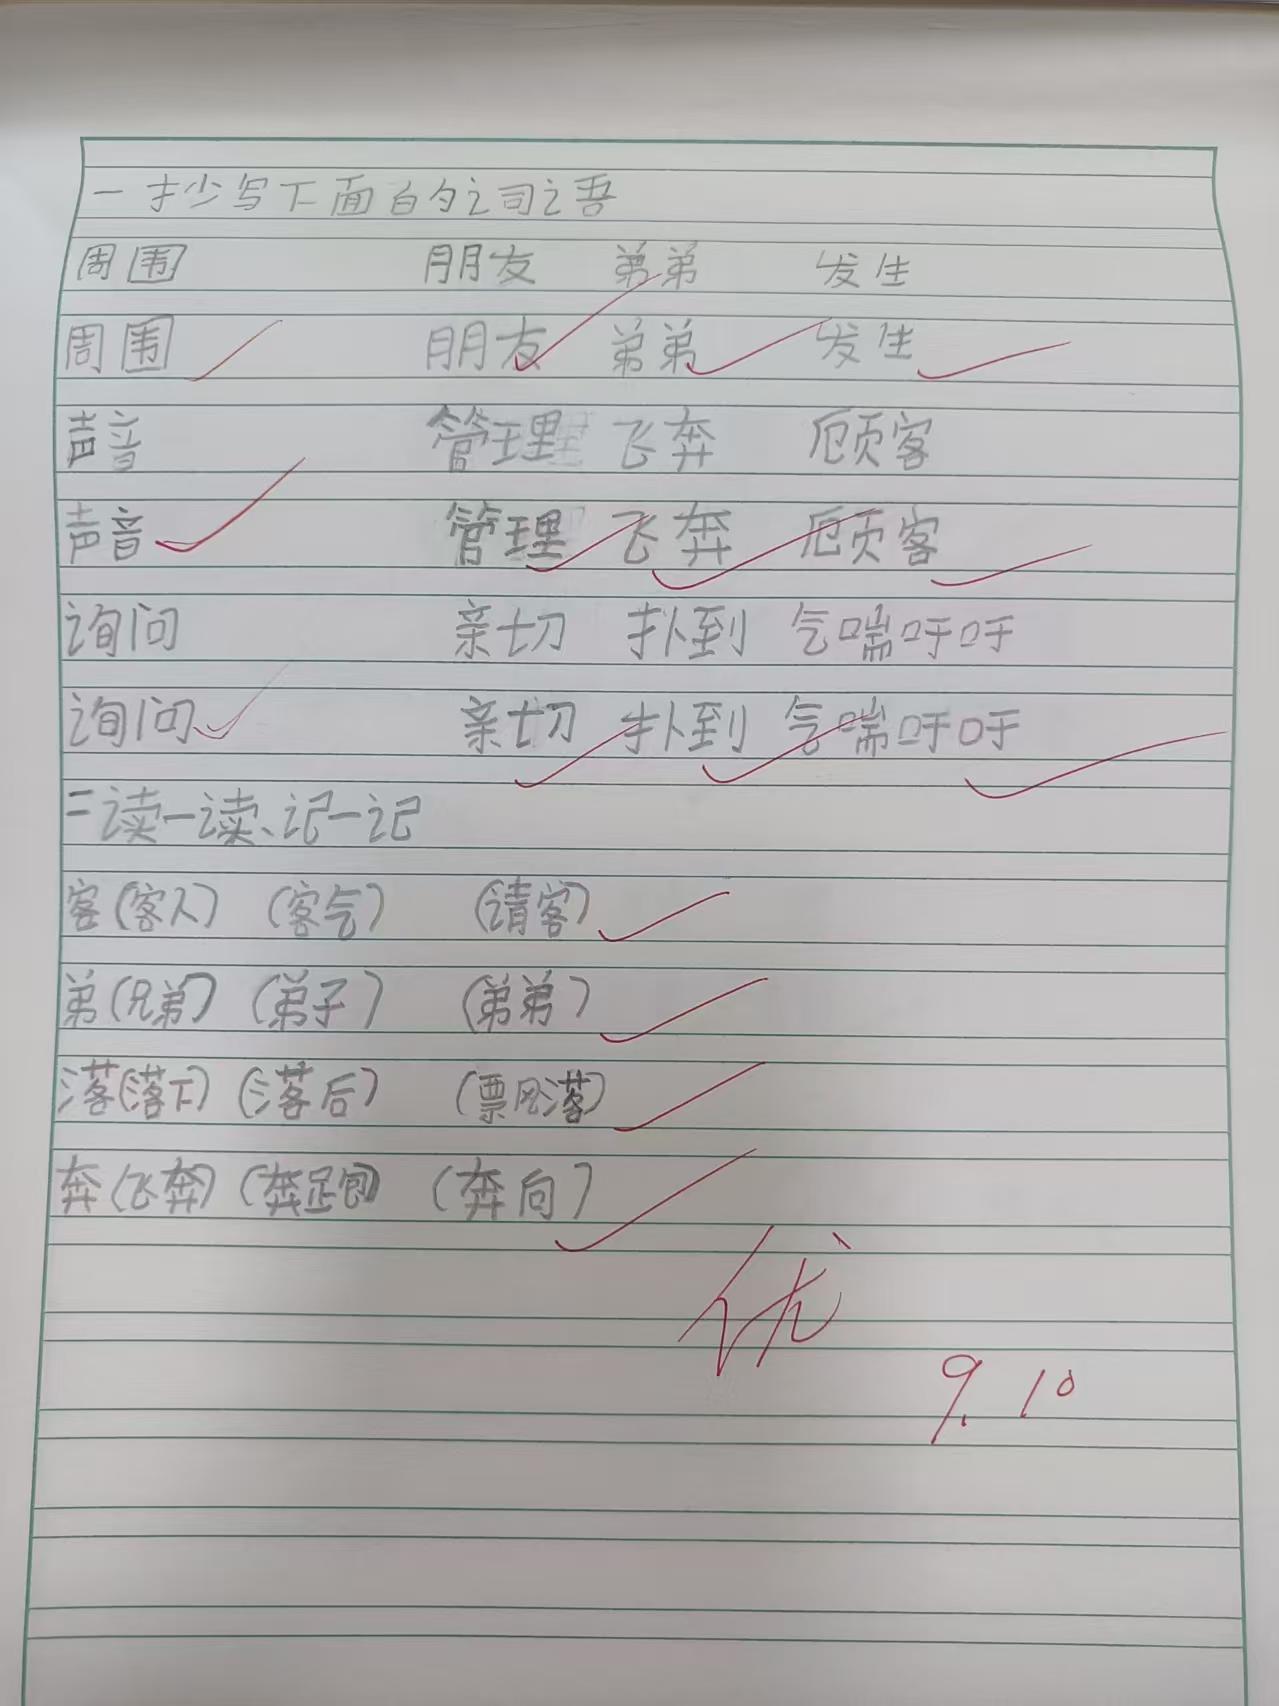 一抄写下面的词语
周围 朋友 弟弟 发生
周围 朋友 弟弟 发生
声音 管理 飞奔 顾客
声音 管理 飞奔 顾客
询问 亲切 扑到 气喘吁吁
询问 亲切 扑到 气喘吁吁
二读一读、记一记
客(客人) (客气) (请客)
弟(兄弟) (弟子) (弟弟)
落(落下) (落后) (飘落)
奔(飞奔) (奔跑) (奔向)
优
9.10